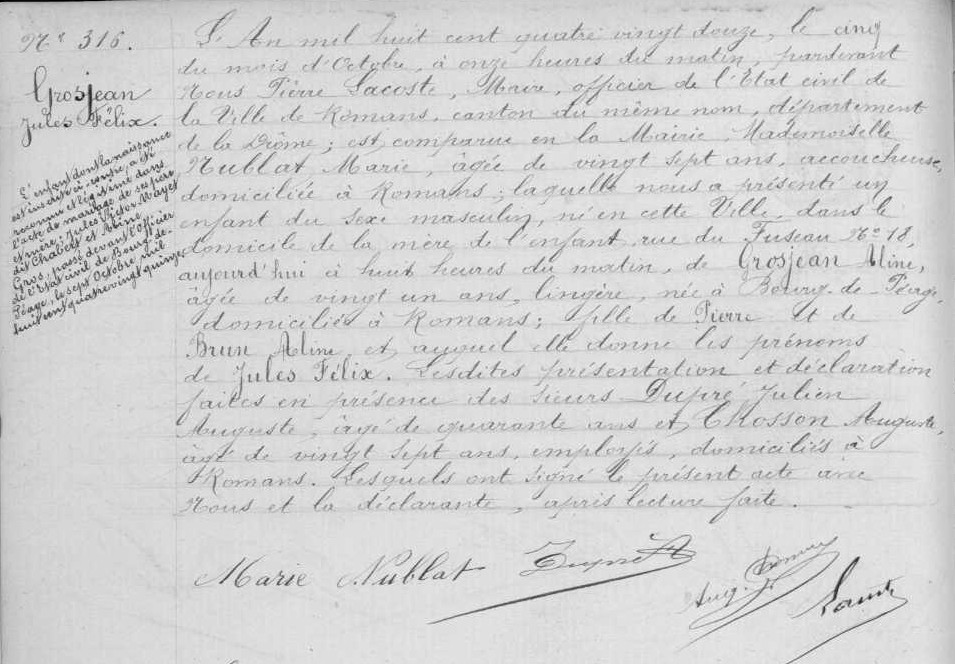 N° 316.
Grosjean
Jules Félix.
L'enfant dont la naissance
est inscrite ci-contre, a été
reconnu et légitimé dans
l'acte de mariage de ses père
et mère, Jules Victor
dit Chabert et Aline
Gros, passé devant l'officier
de l'Etat civil de Bourg-de-
Péage, le sept Octobre mil
huit cent quatre vingt quinze
L'An mil huit cent quatre vingt douze, le cinq
du mois d'Octobre, à onze heures du matin, pardevant
Nous Pierre Lacoste, Maire, officier de l'Etat civil de
la Ville de Romans, canton du même nom, département
de la Drôme; est comparue en la Mairie, Mademoiselle
Nublat Marie, âgée de vingt sept ans, accoucheuse,
domiciliée à Romans; laquelle nous a présenté un
enfant du sexe masculin, né en cette Ville, dans le
domicile de la mère de l'enfant rue du Fuseau N° 18,
aujourd'hui à huit heures du matin, de Grosjean Aline,
âgée de vingt un ans, lingère, née à Bourg-de-Péage,
domiciliée à Romans; fille de Pierre et de
Brun Aline, et auquel elle donne les prénoms
de Jules Félix. Lesdites présentation et déclaration
faites en présence des sieurs Dupré Julien
Auguste, âgé de quarante ans et Chosson Auguste,
âgé de vingt sept ans, employés, domiciliés à
Romans. Lesquels ont signé le présent acte avec
Nous et la déclarante, après lecture faite.
Marie Nublat Dupré A
Aug.